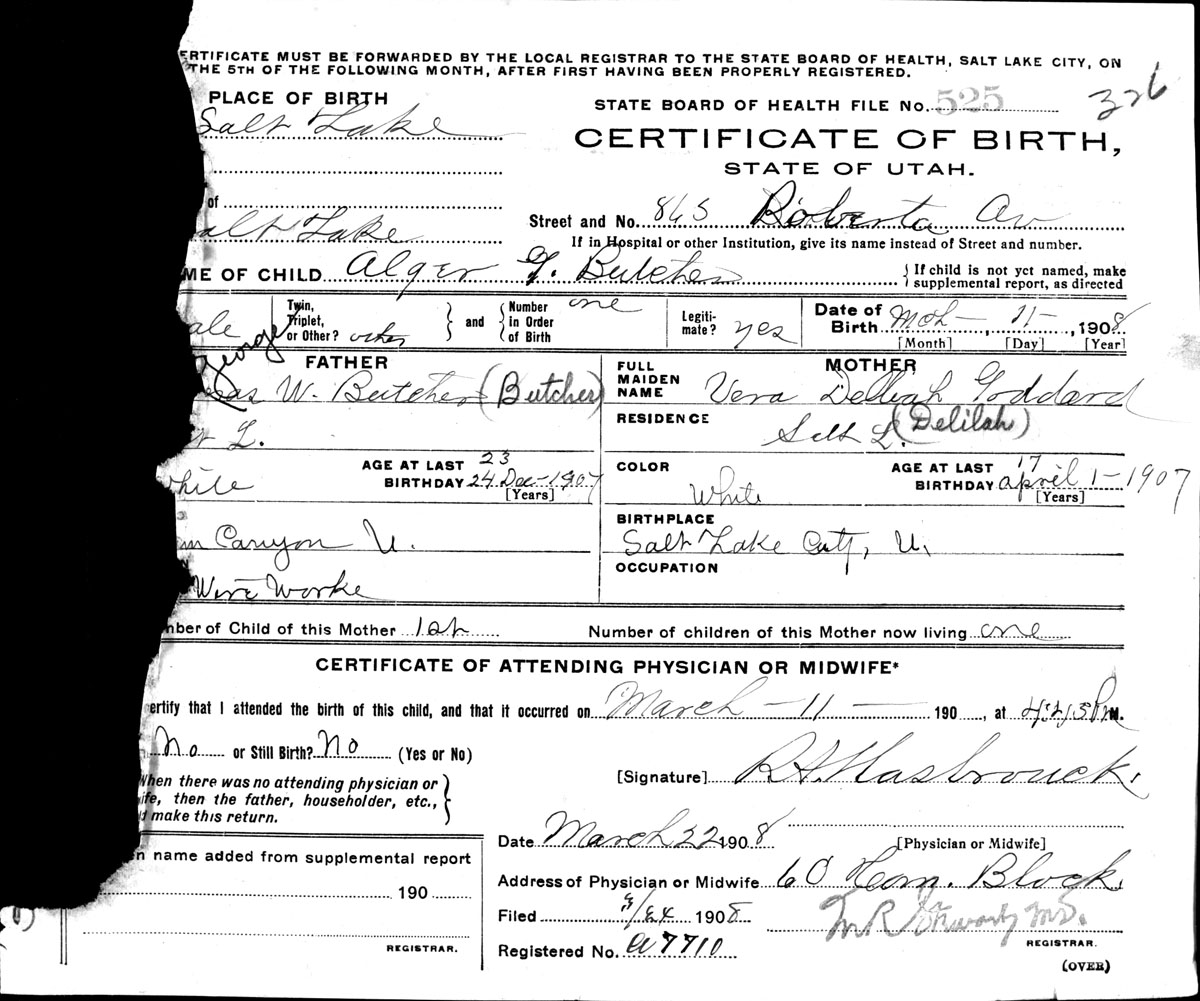 ERTIFICATE MUST BE FORWARDED BY THE LOCAL REGISTRAR TO THE STATE BOARD OF HEALTH, SALT LAKE CITY, ON
THE 5TH OF THE FOLLOWING MONTH, AFTER FIRST HAVING BEEN PROPERLY REGISTERED.
PLACE OF BIRTH
STATE BOARD OF HEALTH FILE No. 525 326
Salt Lake
CERTIFICATE OF BIRTH,
STATE OF UTAH.
of
alt Lake
Street and No. 865 Roberta Av
If in Hospital or other Institution, give its name instead of Street and number.
ME OF CHILD Alger G. Butcher { If child is not yet named, make supplemental report, as directed
ale Twin, Triplet, or Other? other } and { Number in Order of Birth one Legiti-mate? yes Date of Birth Mch - 11 - , 1908
[Month] [Day] [Year]
George
FATHER
as W. Butcher (Butcher)
FULL MAIDEN NAME MOTHER Vera Delleah Goddard
(Delilah)
t L.
RESIDENCE Salt L.
hite AGE AT LAST BIRTHDAY 23 24 Dec - 1907 [Years]
COLOR White AGE AT LAST BIRTHDAY 17 April 1 - 1907 [Years]
m Canyon U.
BIRTHPLACE Salt Lake City, U.
Wire Worke
OCCUPATION
mber of Child of this Mother 1st Number of children of this Mother now living one
CERTIFICATE OF ATTENDING PHYSICIAN OR MIDWIFE*
ertify that I attended the birth of this child, and that it occurred on March - 11 - 190 , at 4:45 P M.
No or Still Birth? No (Yes or No)
[Signature] R. H. Hasbrouck.
When there was no attending physician or
ife, then the father, householder, etc.,
d make this return.
Date March 22 1908 [Physician or Midwife]
n name added from supplemental report
190
Address of Physician or Midwife 60 Com. Block.
Filed 3/24 1908 M.D.
REGISTRAR.
Registered No. 7710
REGISTRAR.
(OVER)